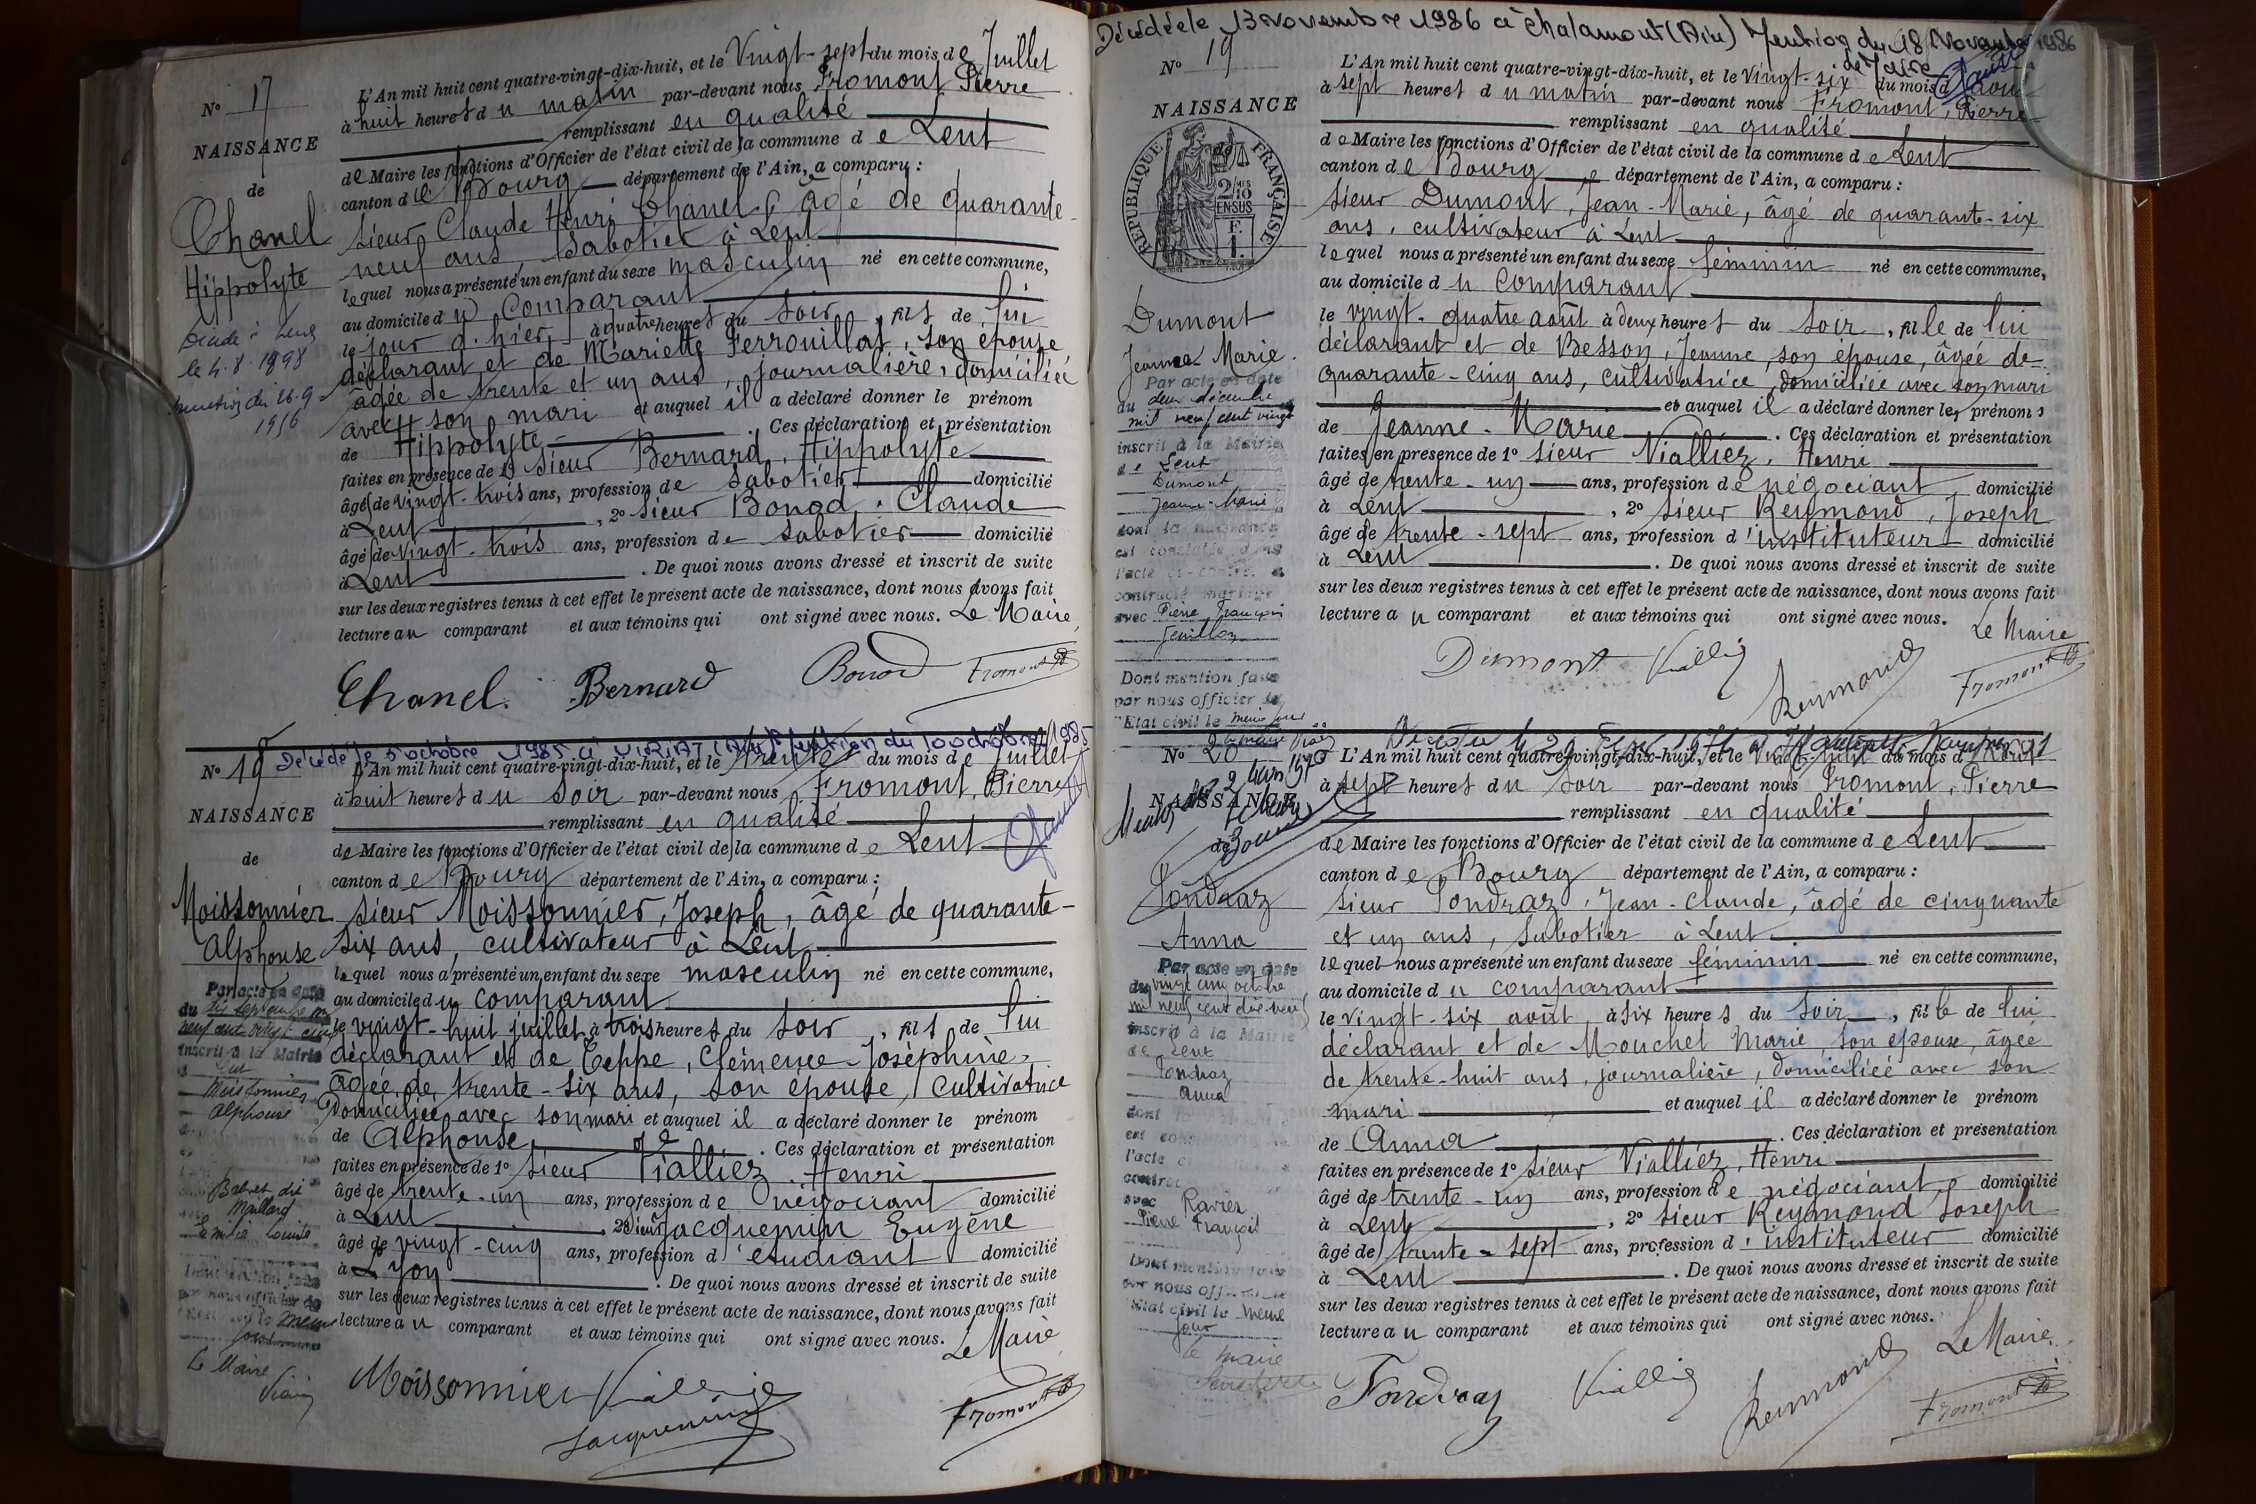 N° 17
NAISSANCE
de
Chanel
Hippolyte
le 4.8.1898
L'An mil huit cent quatre-vingt-dix-huit, et le Vingt-sept du mois de Juillet
à huit heures du matin par-devant nous Fromont Pierre
remplissant en qualité
de Maire les fonctions d'Officier de l'état civil de la commune de Lent
canton de Bourg département de l'Ain, a comparu :
sieur Claude Henri Chanel, âgé de quarante-
neuf ans, sabotier à Lent
lequel nous a présenté un enfant du sexe masculin né en cette commune,
au domicile du comparant
le jour d'hier, à quatre heures du soir, fils de lui
déclarant et de Mariette Ferrouillat, son épouse
âgée de trente et un ans, journalière, domiciliée
avec son mari et auquel il a déclaré donner le prénom
de Hippolyte. Ces déclaration et présentation
faites en présence de 1° sieur Bernard, Hippolyte
âgé de vingt-trois ans, profession de sabotier domicilié
à Lent, 2° sieur Bonod, Claude
âgé de vingt-trois ans, profession de sabotier domicilié
à Lent. De quoi nous avons dressé et inscrit de suite
sur les deux registres tenus à cet effet le présent acte de naissance, dont nous avons fait
lecture au comparant et aux témoins qui ont signé avec nous. Le Maire,
Chanel. Bernard Bonod Fromont
Décédé le 5 octobre 1985 à VIRIAT (Ain) Mention du 10 octobre 1985
N° 18
NAISSANCE
de
Moissonnier
Alphonse
Par acte en date
neuf cent vingt cinq
inscrit à la Mairie
Moissonnier
Alphonse
Le Maire
L'An mil huit cent quatre-vingt-dix-huit, et le trente du mois de Juillet
à huit heures du soir par-devant nous Fromont, Pierre
remplissant en qualité
de Maire les fonctions d'Officier de l'état civil de la commune de Lent
canton de Bourg département de l'Ain, a comparu :
sieur Moissonnier, Joseph, âgé de quarante-
six ans, cultivateur à Lent
lequel nous a présenté un enfant du sexe masculin né en cette commune,
au domicile du comparant
le vingt-huit juillet à trois heures du soir, fils de lui
déclarant et de Teppe, Clémence-Joséphine,
âgée de trente-six ans, son épouse, cultivatrice
domiciliée avec son mari et auquel il a déclaré donner le prénom
de Alphonse. Ces déclaration et présentation
faites en présence de 1° sieur Vialliez, Henri
âgé de trente-un ans, profession de négociant domicilié
à Lent, 2° sieur Jacquemin Eugène
âgé de vingt-cinq ans, profession d'étudiant domicilié
à Lyon. De quoi nous avons dressé et inscrit de suite
sur les deux registres tenus à cet effet le présent acte de naissance, dont nous avons fait
lecture au comparant et aux témoins qui ont signé avec nous. Le Maire
Moissonnier Jacquemin Fromont
Décédée le 13 Novembre 1986 à Chalamont (Ain) Mention du 18 Novembre 1986
N° 19
NAISSANCE
de
RÉPUBLIQUE FRANÇAISE
2/10 EN SUS
F. 1.
Dumont
Jeanne Marie.
Par acte en date
du deux décembre
mil neuf cent vingt
inscrit à la Mairie
de Lent
Dumont
Jeanne-Marie
dont la naissance
est constatée dans
l'acte ci-contre, a
contracté mariage
avec Pierre François
Dont mention faite
par nous officier de
l'Etat civil le même jour
L'An mil huit cent quatre-vingt-dix-huit, et le Vingt-six du mois d'Août
à sept heures du matin par-devant nous Fromont, Pierre
remplissant en qualité
de Maire les fonctions d'Officier de l'état civil de la commune de Lent
canton de Bourg département de l'Ain, a comparu :
sieur Dumont, Jean-Marie, âgé de quarante-six
ans, cultivateur à Lent
lequel nous a présenté un enfant du sexe féminin né en cette commune,
au domicile du comparant
le vingt-quatre août à deux heures du soir, fille de lui
déclarant et de Besson, Jeanne, son épouse, âgée de
quarante-cinq ans, cultivatrice, domiciliée avec son mari
et auquel il a déclaré donner les prénoms
de Jeanne-Marie. Ces déclaration et présentation
faites en présence de 1° sieur Vialliez, Henri
âgé de trente-un ans, profession de négociant domicilié
à Lent, 2° sieur Reymond, Joseph
âgé de trente-sept ans, profession d'instituteur domicilié
à Lent. De quoi nous avons dressé et inscrit de suite
sur les deux registres tenus à cet effet le présent acte de naissance, dont nous avons fait
lecture au comparant et aux témoins qui ont signé avec nous. Le Maire
Dumont Reymond Fromont
N° 20
NAISSANCE
de
Tondraz
Anna
Par acte en date
du vingt cinq octobre
inscrit à la Mairie
de Lent
Tondraz
Anna
avec Ravier
Pierre François
Dont mention faite
par nous officier
Etat civil le même
jour
Le maire
L'An mil huit cent quatre-vingt-dix-huit, et le Vingt-huit du mois d'Août
à sept heures du soir par-devant nous Fromont, Pierre
remplissant en qualité
de Maire les fonctions d'Officier de l'état civil de la commune de Lent
canton de Bourg département de l'Ain, a comparu :
sieur Tondraz, Jean-Claude, âgé de cinquante
et un ans, sabotier à Lent
lequel nous a présenté un enfant du sexe féminin né en cette commune,
au domicile du comparant
le vingt-six août, à six heures du soir, fille de lui
déclarant et de Mouchet Marie, son épouse, âgée
de trente-huit ans, journalière, domiciliée avec son
mari et auquel il a déclaré donner le prénom
de Anna. Ces déclaration et présentation
faites en présence de 1° sieur Vialliez, Henri
âgé de trente-un ans, profession de négociant domicilié
à Lent, 2° sieur Reymond Joseph
âgé de trente-sept ans, profession d'instituteur domicilié
à Lent. De quoi nous avons dressé et inscrit de suite
sur les deux registres tenus à cet effet le présent acte de naissance, dont nous avons fait
lecture au comparant et aux témoins qui ont signé avec nous. Le Maire.
Tondraz Reymond Fromont